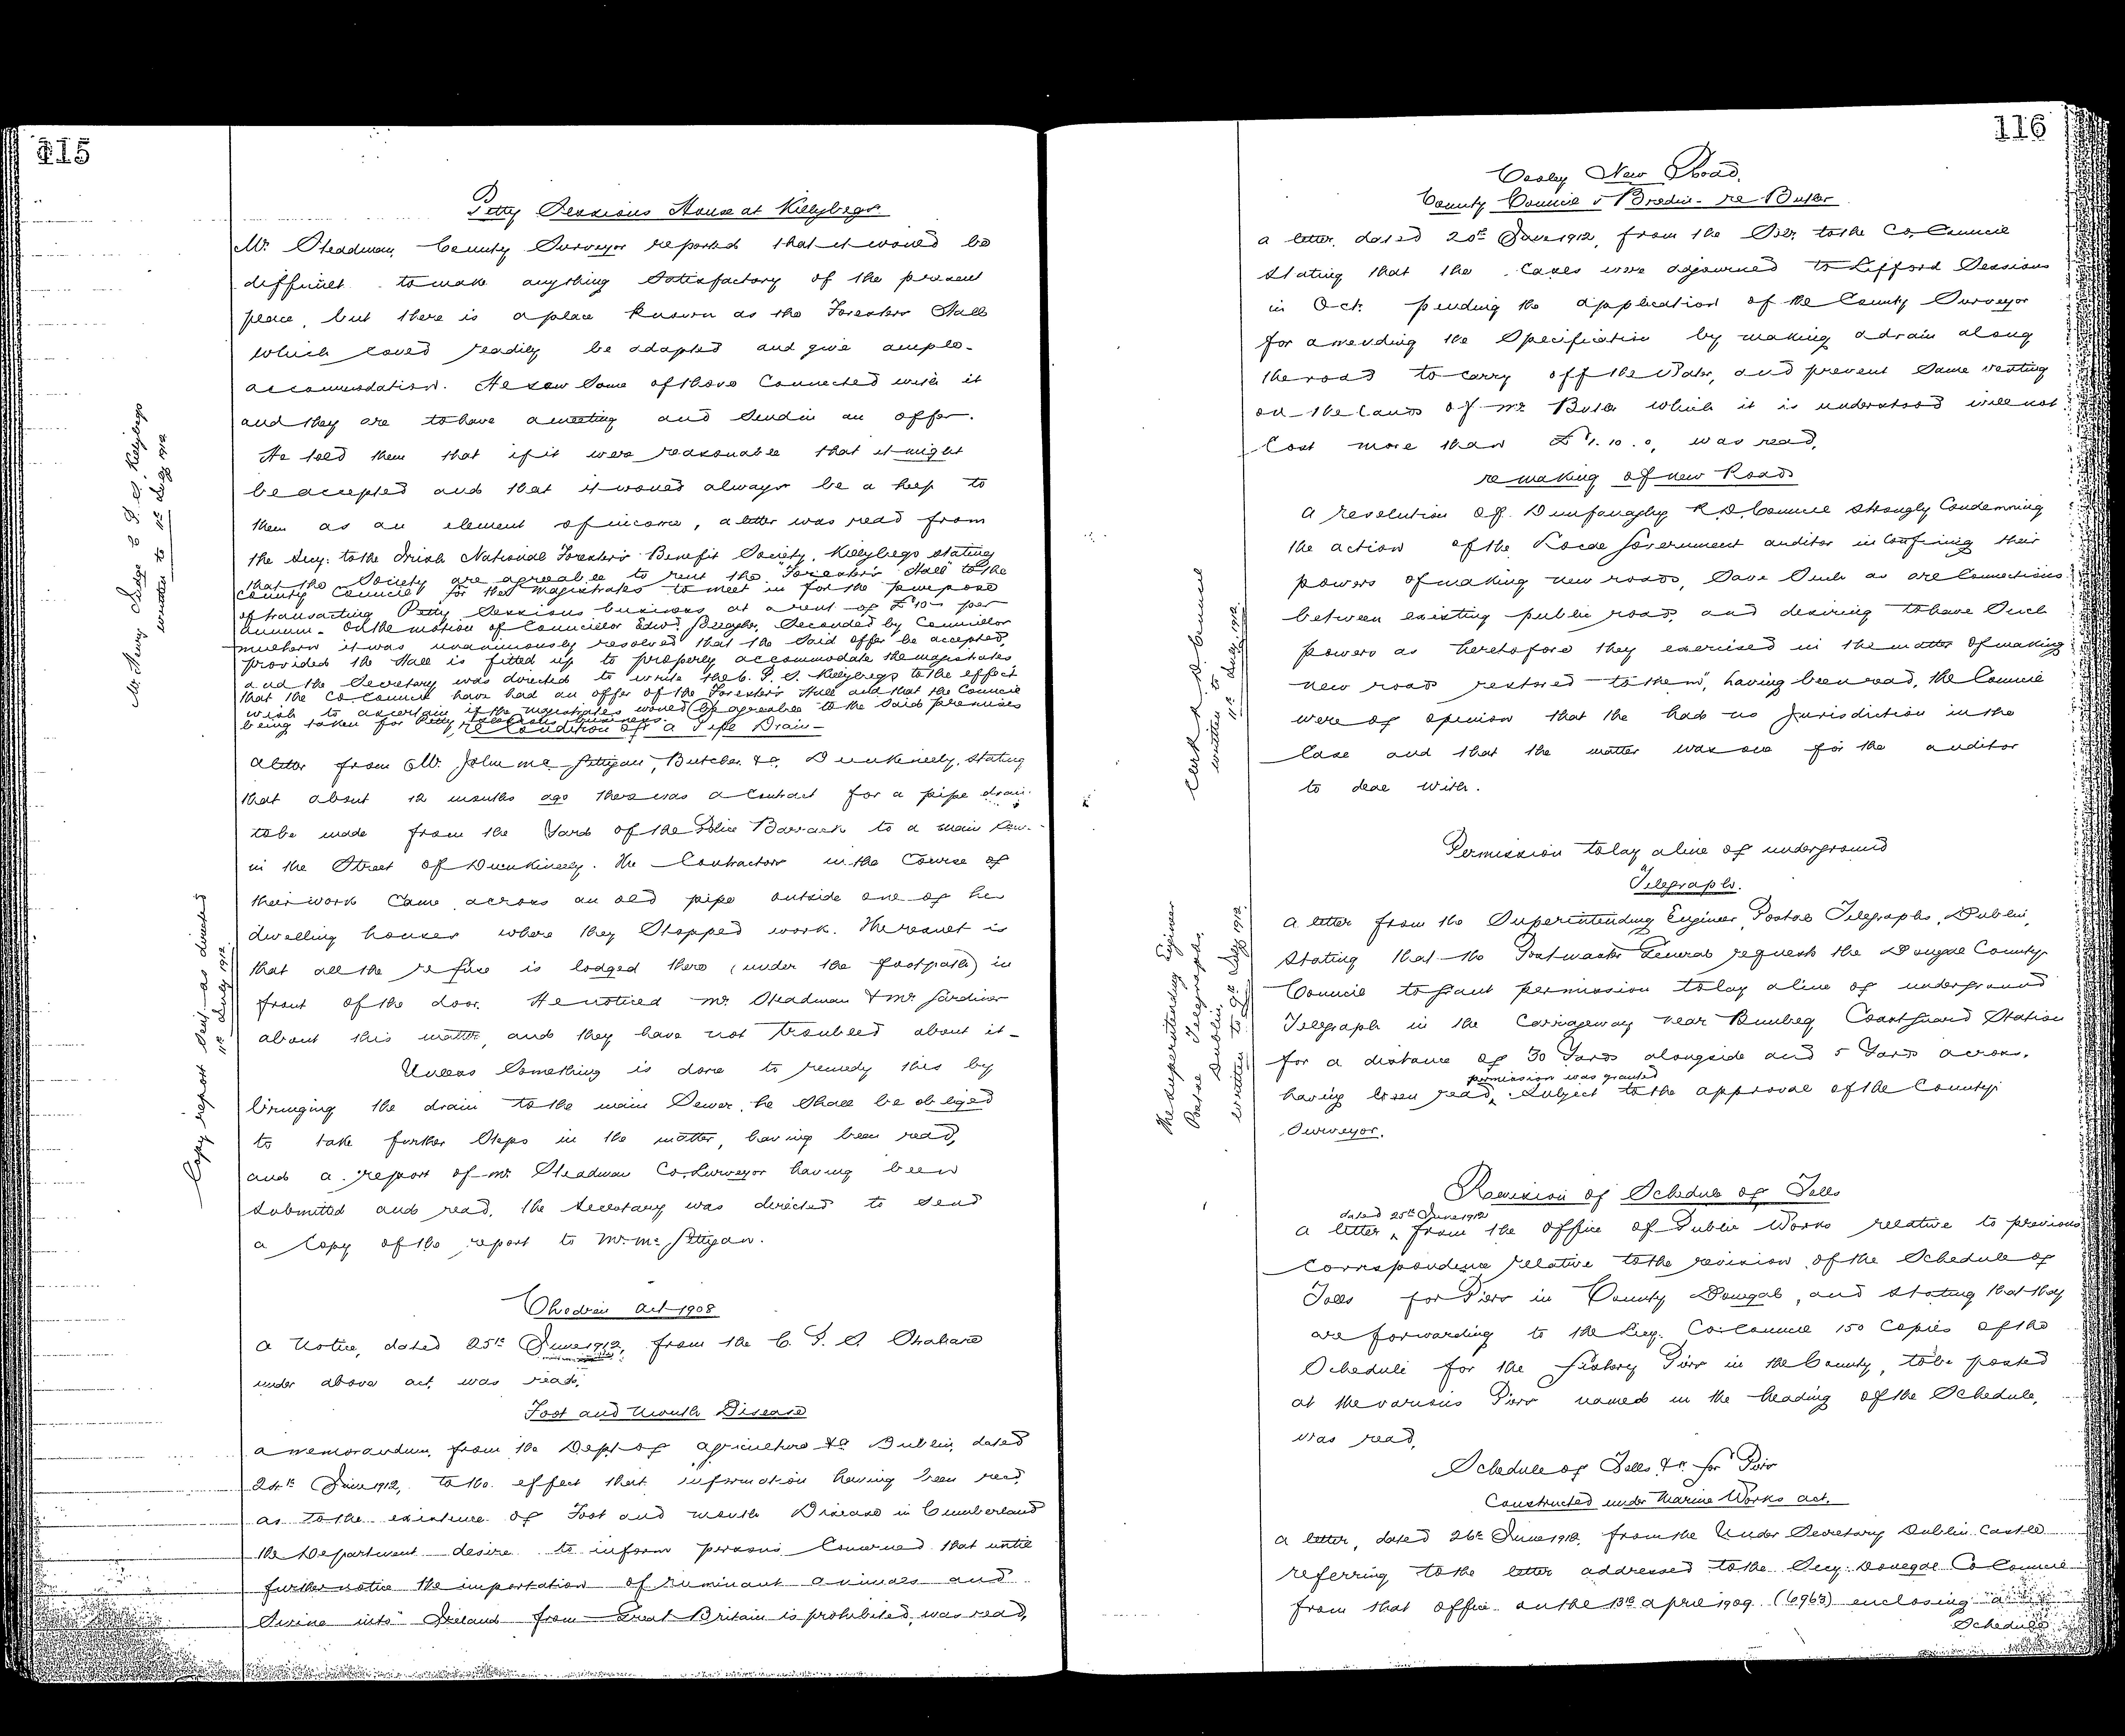 115
Petty Sessions House at Killybegs
Mr. Steadman, County Surveyor reported that it would be
difficult to make anything satisfactory of the present
place, but there is a place known as the Foresters Hall
which could readily be adapted and give ample
accommodation. He saw some of those connected with it
and they are to have a meeting and send in an offer.
He told them that if it were reasonable that it might
be accepted and that it would always be a help to
them as an element of income, a letter was read from
the Secy: to the Irish National Foresters Benefit Society, Killybegs stating
that the Society are agreeable to rent the "Forester's Hall" to the
County Council for the Magistrates to meet in for the purpose
of transacting Petty Sessions business at a rent of £10 - per
annum - On the motion of Councillor Edwd. Seconded by Councillor
it was unanimously resolved that the said offer be accepted,
provided the Hall is fitted up to properly accommodate the magistrates
and the Secretary was directed to write the C. P. S. Killybegs to the effect
that the Co Council have had an offer of the Forester's Hall and that the Council
wish to ascertain if the magistrates would be agreeable to the said premises
being taken for Petty Sessions business.
re Condition of a Pipe Drain -
A letter from Mr. John Mc Gettigan, Butcher &c, Dunkineely, stating
that about 12 months ago there was a contract for a pipe drain
to be made from the Yard of the Police Barrack to a main sew-
in the Street of Dunkineely. The Contractors in the course of
their work came across an old pipe outside one of his
dwelling houses where they stopped work. The result is
that all the refuse is lodged there (under the footpath) in
front of the door. He noticed Mr. Steadman & Mr. Gardiner
about this matter, and they have not troubled about it -
Unless something is done to remedy this by
bringing the drain to the main Sewer, he shall be obliged
to take further steps in the matter, having been read,
and a report of Mr. Steadman Co. Surveyor having been
submitted and read, the Secretary was directed to send
a copy of the report to Mr. Mc Gettigan.
Children Act 1908
A Notice, dated 25th June 1912, from the C. P. S. Strabane
under above act, was read,
Foot and Mouth Disease
A memorandum, from the Dept of Agriculture &c Dublin, dated
24th June 1912, to the effect that information having been recd
as to the existence of Foot and Mouth Disease in Cumberland
the Department desire to inform persons concerned that until
further notice the importation of ruminant animals and
Swine into Ireland from Great Britain is prohibited, was read,
Mr. Henry C P. S. Killybegs
written to 11th July 1912
Copy report sent as directed
11th July 1912
116
New Road,
County Council v Bredin - re Buter
A letter, dated 20th June 1912, from the Solr. to the Co. Council
stating that the cases were adjourned to Lifford Sessions
in Oct. pending the application of the County Surveyor
for amending the Specification by making a drain along
the road to carry off the Water, and prevent same resting
on the lands of Mr. which it is understood will not
cost more than £1. 10. 0, was read,
re making of new Roads
A resolution of Dunfanaghy R. D. Council strongly condemning
the action of the Local Government auditor in confining their
powers of making new roads, save such as are connections
between existing public roads, and desiring to have such
powers as heretofore they exercised in the matter of making
new roads restored to them", having been read, the Council
were of opinion that the had no jurisdiction in the
case and that the matter was one for the auditor
to deal with.
Permission to lay a line of underground
Telegraphs.
A letter from the Superintending Engineer, Postal Telegraphs, Dublin,
stating that the Postmaster General requests the Donegal County
Council to grant permission to lay a line of underground
Telegraph in the Carriageway near Bunbeg Coastguard Station
for a distance of 30 Yards alongside and 5 Yards across,
having been read, permission was granted subject to the approval of the County
Surveyor.
Revision of Schedule of Tolls
A letter, dated 25th June 1912 from the Office of Public Works relative to previous
correspondence relative to the revision of the Schedule of
Tolls for Piers in County Donegal, and stating that they
are forwarding to the Secy. Co: Council 150 Copies of the
Schedule for the Fishery Piers in the County, to be posted
at the various Piers named in the heading of the Schedule,
was read,
Schedule of Tolls &c for Piers
Constructed under Marine Works Act.
A letter, dated 26th June 1912, from the Under Secretary Dublin Castle
referring to the letter addressed to the Secy: Donegal Co Council
from that office on the 13th April 1909 (6963) enclosing a
Schedule
Clerk R. D. Council
written to
11th July 1912
The Superintending Engineer
Postal Telegraphs,
Dublin,
written to 9th July 1912